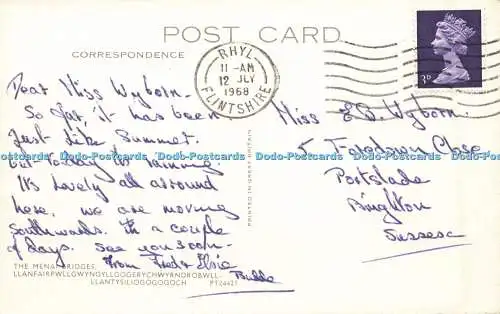 POST CARD
CORRESPONDENCE
RHYL
11-AM
12 JLY
1968
FLINTSHIRE
3D
Dear Miss Wyborn.
So far, it has been
Just like Summer.
but today its raining.
It's lovely all around
here, we are moving
southwards in a couple
of days. See you soon.
From Fred & Elsie
Budde
Miss E.D. Wyborn.
5 Close
Portslade
Brighton
Sussex
Dodo-Postcards Dodo-Postcards Dodo-Postcards Dodo-Postcards Dodo-Postcards Dodo-Postcards
PRINTED IN GREAT BRITAIN
THE MENAI BRIDGES,
LLANFAIRPWLLGWYNGYLLGOGERYCHWYRNDROBWLL-
LLANTYSILIOGOGOGOCH PT24421